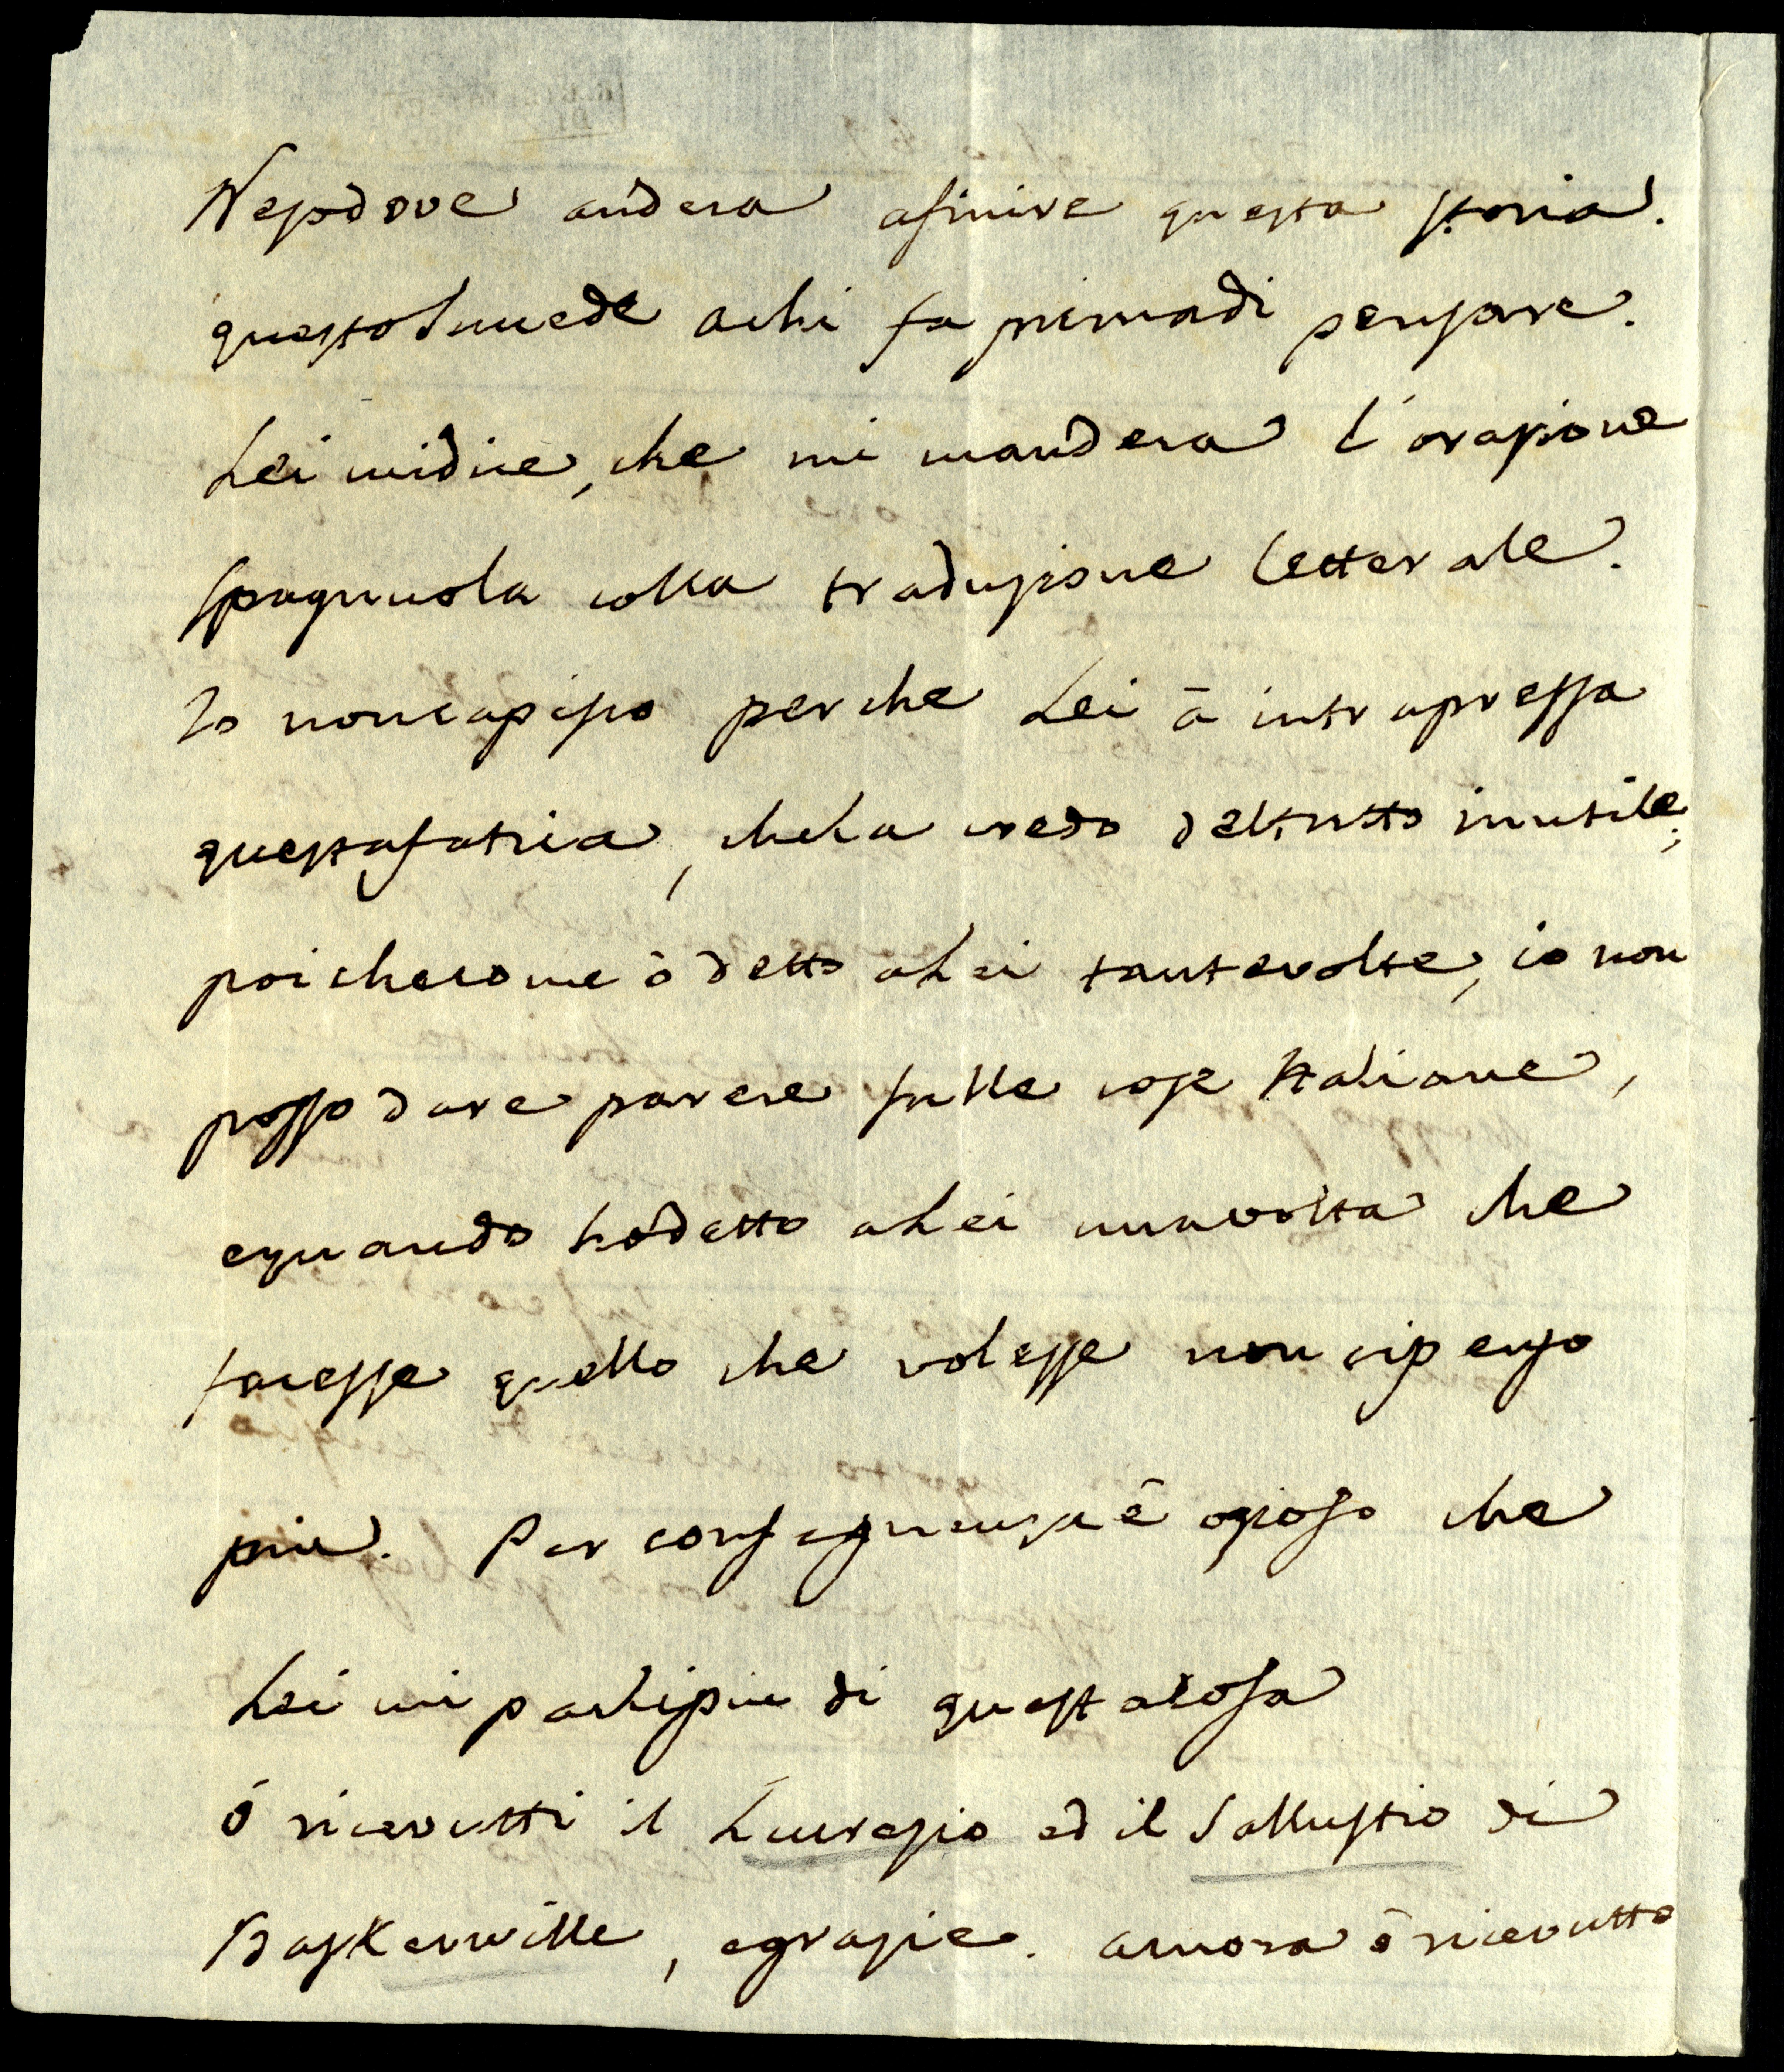 Nesodove andera afinire questa storia.
questoSuccede achi fa primadi pensare.
Lei midice, che mi mandera l'orazione
spagnuola colla traduzione letterale.
Io noncapisco perche Lei à intrapressa
questafatica, cheLa credo deltutto inutile;
poichecome ò detto aLei tantevolte, io non
posso dare parere sulle cose Italiane,
equando hòdetto aLei unavolta che
facesse quello che volesse non cipenso
piu. Per conseguenza è ozioso che
Lei mi parlipiu di questacosa
ò ricevutti il Lucrezio ed il Sallustio di
Baskerwille, egrazie. ancora ò ricevutto